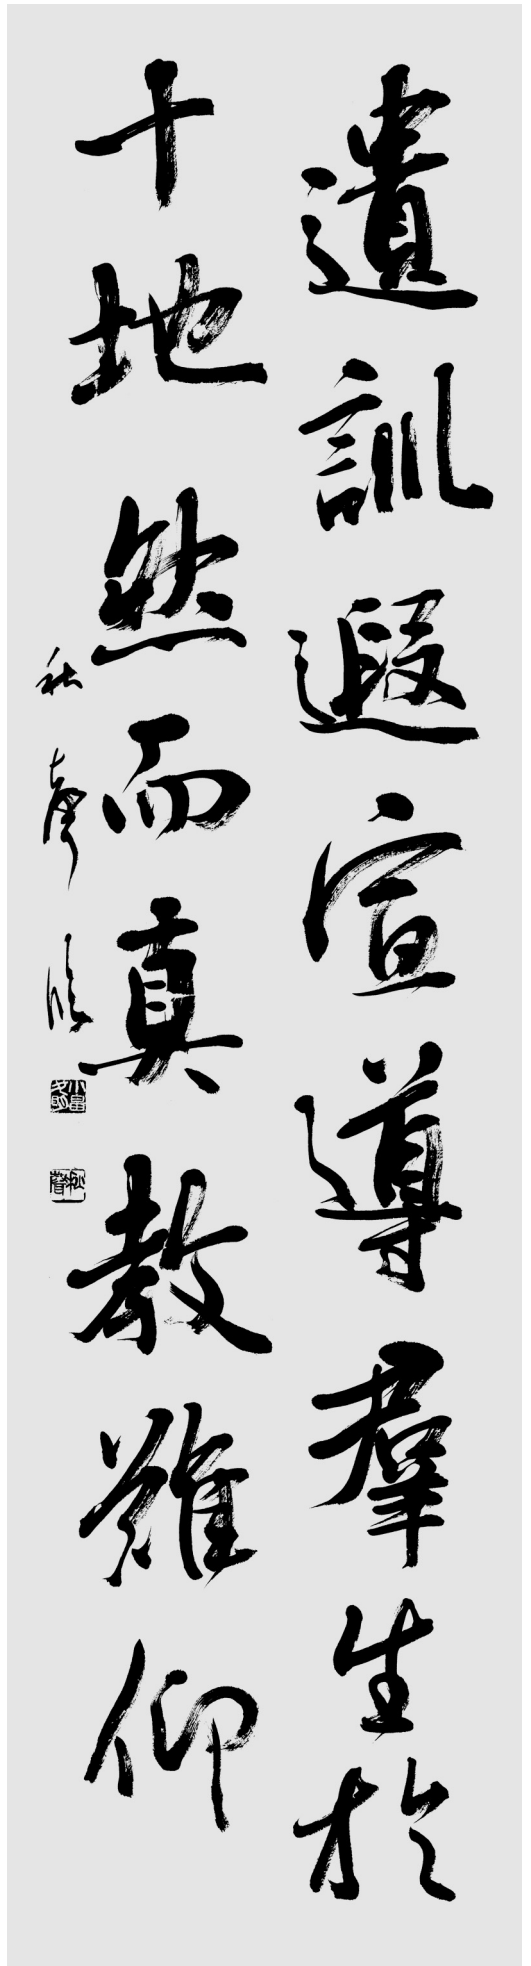 遺訓遐宣導羣生於
十地然而真教難仰
秋聲臨